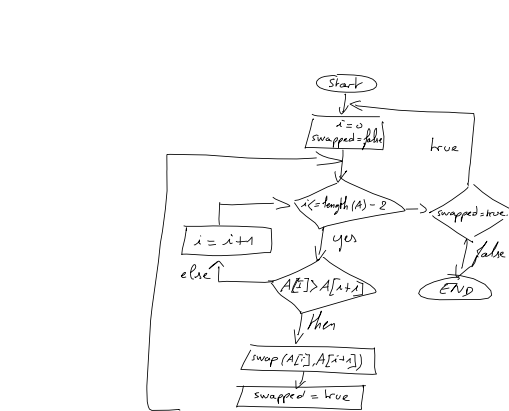 start
i = 0
swapped = false
true
i <= length (A) - 2
swapped = true
yes
i = i+1
false
else
A[I] > A[i+i]
END
then
swap (A[i], A[i+1])
swapped = true